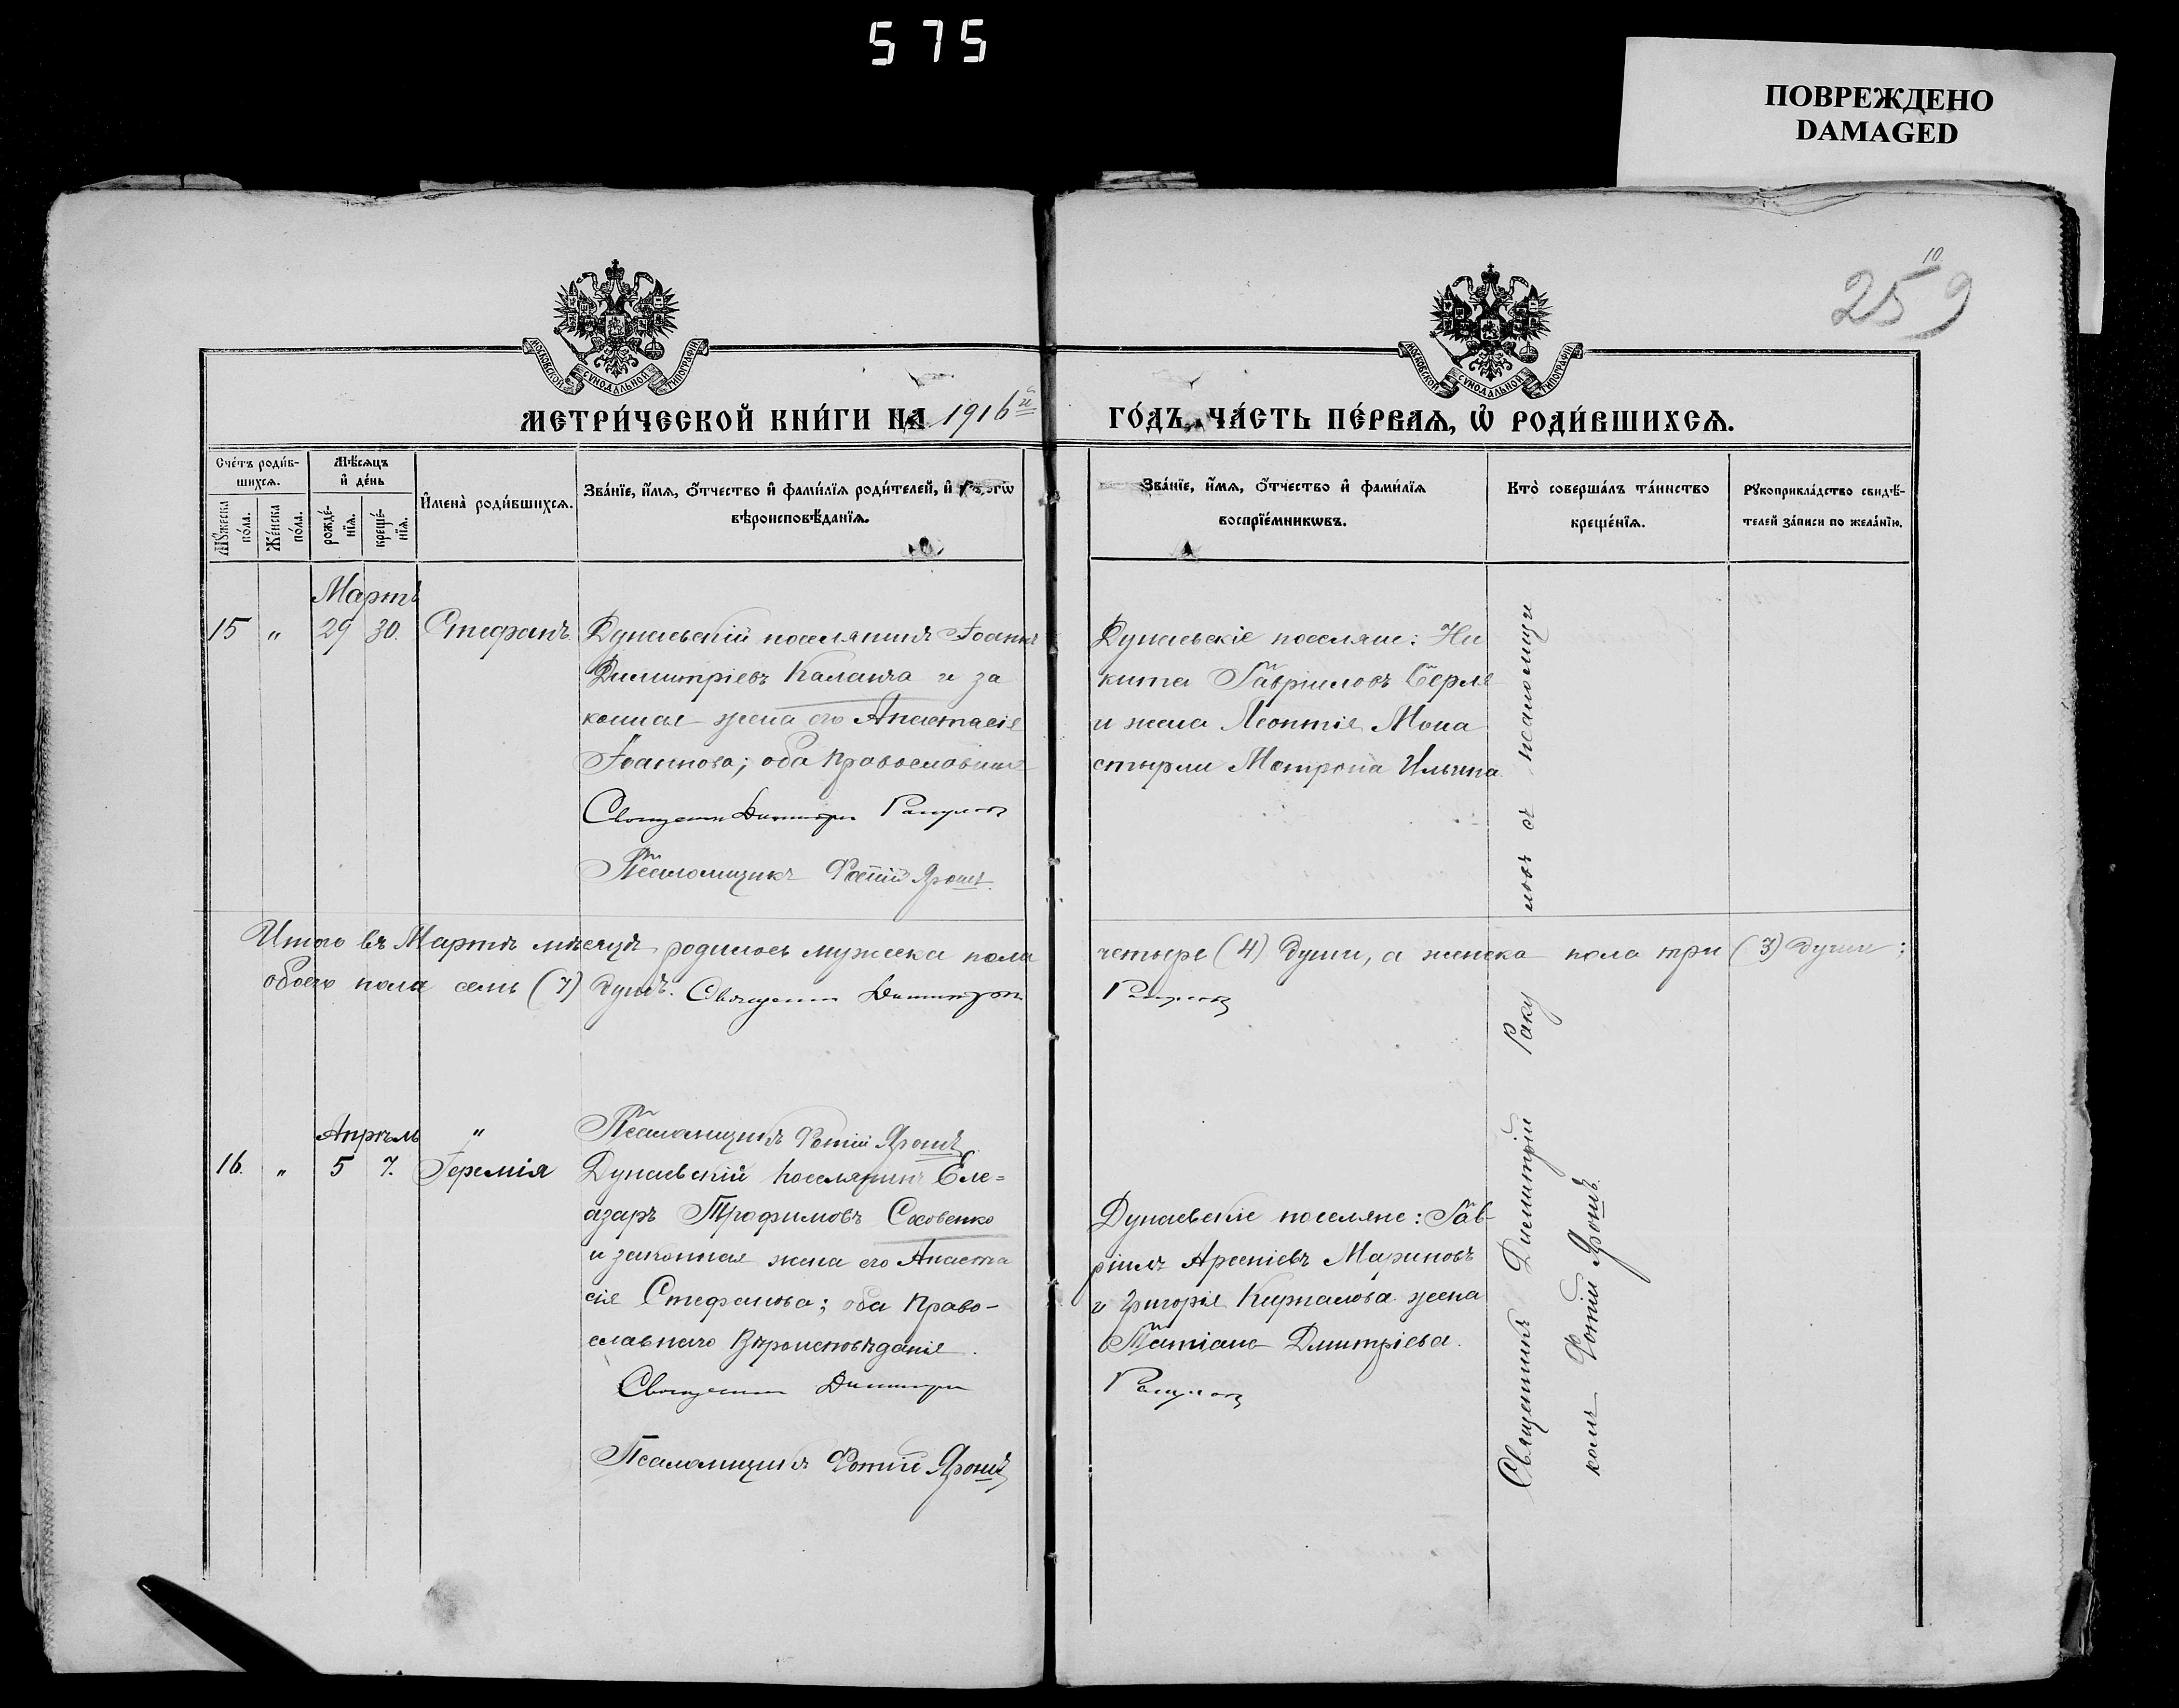 575
ПОВРЕЖДЕНО
DAMAGED
10
259
МОСКОВСКОЙ СѴНОДАЛЬНОЙ ТИПОГРАФІИ
МОСКОВСКОЙ СѴНОДАЛЬНОЙ ТИПОГРАФІИ
МЕТРИ́ЧЕСКОЙ КНИ́ГИ НА 1916й
ГО́ДЪ, ЧА́СТЬ ПЕ́РВАѦ, Ѡ҆ РОДИ́ВШИХСѦ.
Сче́тъ роди́в-
шихсѧ.
Мꙋ́жеска по́ла.
Же́нска по́ла.
Мѣ́сѧцъ
и҆ де́нь
рожде́-
нїѧ.
креще́-
нїѧ.
И҆мена̀ роди́вшихсѧ.
Зва́нїе, и҆́мѧ, ѻ҆́тчество и҆ фами́лїѧ роди́телей, и҆
вѣроисповѣ́данїѧ.
Зва́нїе, и҆́мѧ, ѻ҆́тчество и҆ фами́лїѧ
воспрїе́мникωвъ.
Кто̀ соверша́лъ та́инство
креще́нїѧ.
Рꙋкоприкла́дство свидѣ́-
телей за́писи по жела́нїю.
Мартъ
15 " 29 30. Стефанъ.
Дунаевскій поселянинъ Іоаннъ
Димитріевъ Каланжа и за
конная жена его Анастасія
Іоаннова; оба православные
Священн Димитри
Псаломщикъ Фотій Ярошъ.
Дунаевскіе поселяне: Ни
кита Гавріиловъ Берля
и жена Леонтія Мона
стырли Матрона Ильина.
Итого въ Мартѣ мѣсяцѣ родилось мужеска пола
четыре (4) души, а женска пола три (3) души;
обоего пола семь (7) душъ. Священн Димитри
Апрѣль "
Псаломщикъ Фотій Ярошъ
16. " 5 7. Іеремія
Дунаевскій поселянинъ Еле=
азаръ Трофимовъ Сосовенко
и законная жена его Анаста
сія Стефанова; оба право-
славнаго вѣроисповѣданія.
Священн Димитри
Псаломщикъ Фотій Ярошъ
Дунаевскіе поселяне: Гав-
ріилъ Арсеніевъ Мариновъ
и Григорія Кирнасова жена
Татіана Дмитріева.
Священникъ Димитрій Раку ловъ съ псаломщи
комъ Фотій Ярошъ.